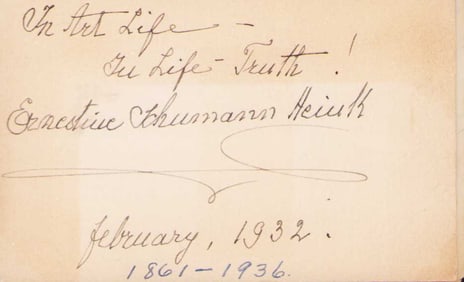 In Art Life —
In Life - Truth !
Ernestine Schumann Heink
february, 1932.
1861-1936.